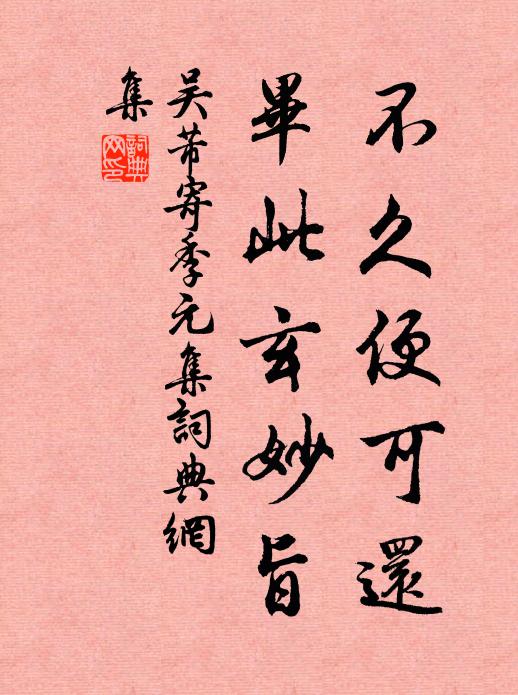 不久便可還
畢此玄妙旨
吳芾寄季元集詞典網
集
詞典網印